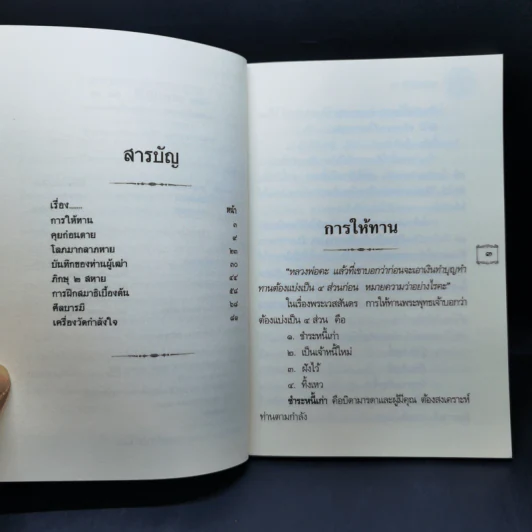 สารบัญ
เรื่อง...... หน้า
การให้ทาน ๑
คุยก่อนตาย ๙
โลภมากลาภหาย ๒๑
บันทึกของท่านผู้เฒ่า ๓๐
ภิกษุ ๒ สหาย ๔๔
การฝึกสมาธิเบื้องต้น ๕๔
ศีลบารมี ๖๘
เครื่องวัดกำลังใจ ๘๒
การให้ทาน
๑
"หลวงพ่อคะ แล้วที่เขาบอกว่าก่อนจะเอาเงินทำบุญทำ
ทานต้องแบ่งเป็น ๔ ส่วนก่อน หมายความว่าอย่างไรคะ"
ในเรื่องพระเวสสันดร การให้ทานพระพุทธเจ้าบอกว่า
ต้องแบ่งเป็น ๔ ส่วน คือ
๑. ชำระหนี้เก่า
๒. เป็นเจ้าหนี้ใหม่
๓. ฝังไว้
๔. ทิ้งเหว
ชำระหนี้เก่า คือบิดามารดาและผู้มีคุณ ต้องสงเคราะห์
ท่านตามกำลัง